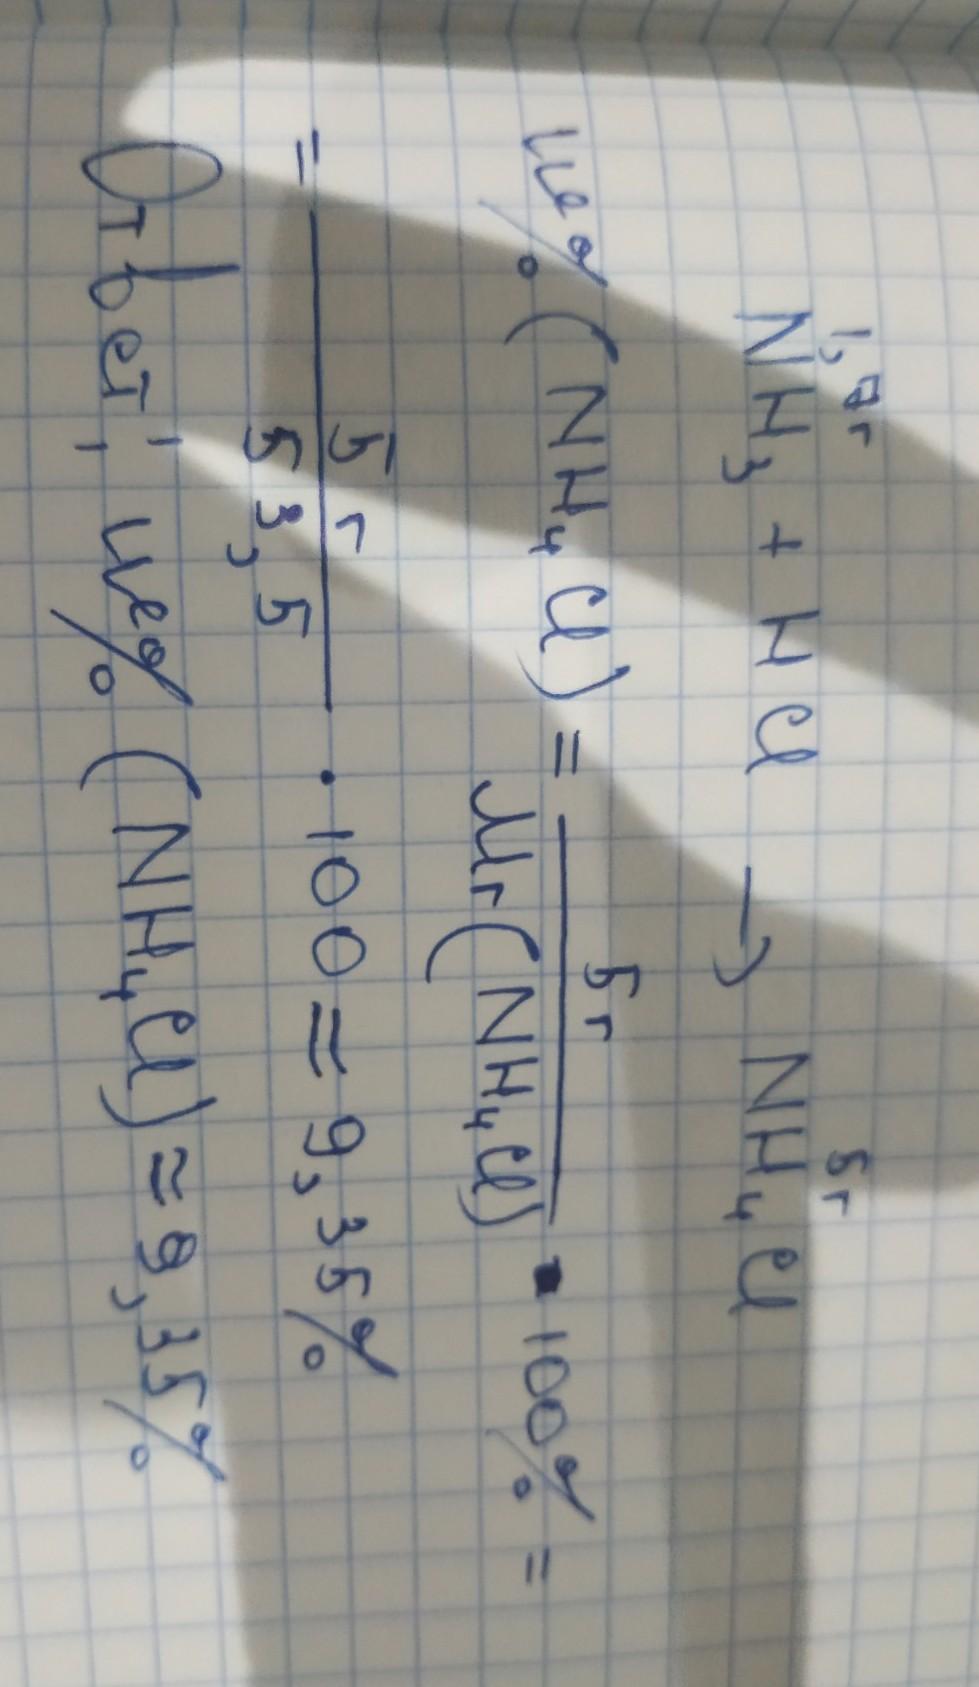 1,7г 5г
NH₃ + HCl → NH₄Cl
ω% (NH₄Cl) = 5г / Mr(NH₄Cl) · 100% =
= 5г / 53,5 · 100 = 9,35%
Ответ: ω% (NH₄Cl) = 9,35%